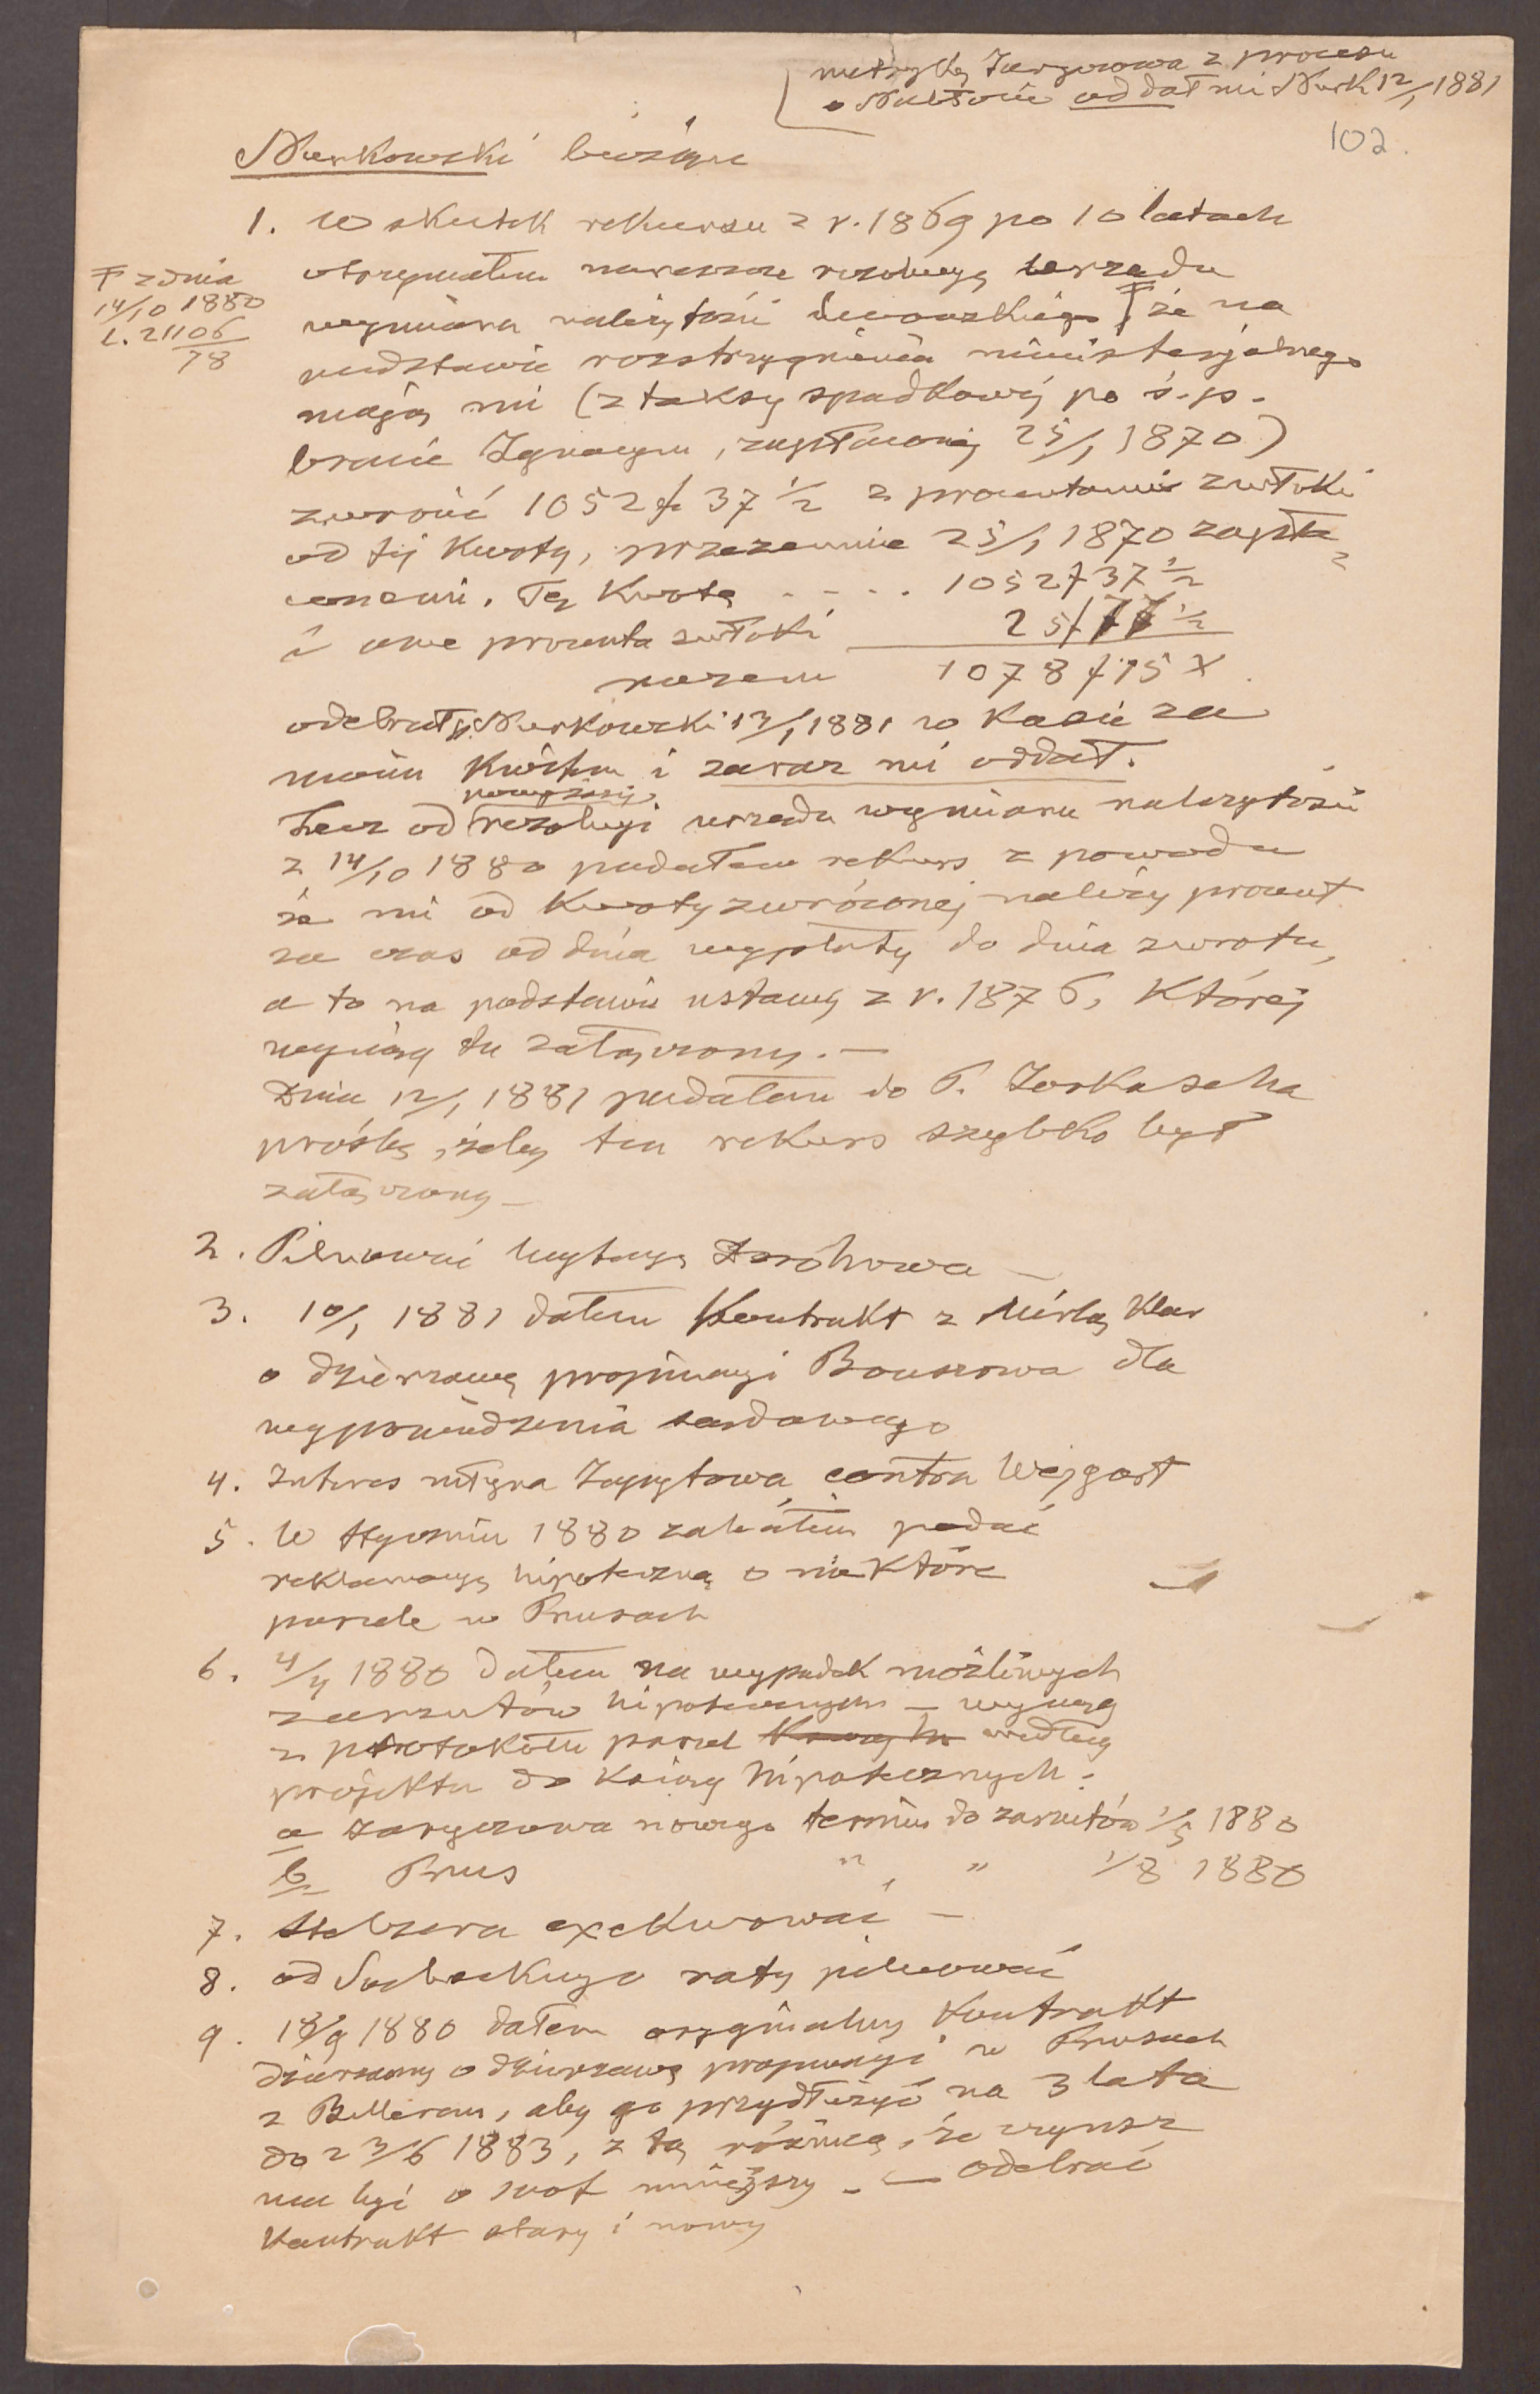 metrykę Jaryczowa z procesu
o oddał mi Nurk 12/1 1881
102.
Nurkowski bieżące
1. W skutek rekursu z r. 1869 po 10 latach
otrzymałem nareszcie rezolucyę urzędu
₸ z dnia
14/10 1880
L. 21106/78
wymiaru należytości lwowskiego ₸ że na
podstawie rozstrzygnienia ministerjalnego
mają mi (z taksy spadkowéj po ś.p.
bracie Ignacym, zapłaconéj 25/1 1870)
zwrócić 1052 f 37 1/2 z procentami zwłoki
od téj kwoty, przezemnie 25/1 1870 zapła=
conemi. Tę kwotę - - - . 1052 f 37 1/2
i owe procenta zwłoki 25 f 77 1/2
razem 1078 f 15 x
odebrał p. Nurkowski 12/1 1881 w kasie za
moim kwitem i zaraz mi oddał.
Lecz od powyższéj rezolucyi urzędu wymiaru należytości
z 14/10 1880 podałem rekurs z powodu
że mi od kwoty zwróconéj należy procent
za czas od dnia wypłaty do dnia zwrotu,
a to na podstawie ustawy z r. 1876, któréj
wyciąg tu załączony. —
Dnia 12/1 1881 podałem do P. Jorkascha
prośbę, żeby ten rekurs szybko był
załączony —
2. Pilnować licytacyę —
3. 10/1 1881 dałem Kontrakt z Mirlą Klar
o dzierżawę propinacyi Bouszowa dla
wyprowadzenia sądowego
4. Interes młyna Zapytowa contra Wejgart
5. W styczniu 1880 zaleciłem podać
reklamacyę hipoteczną o niektóre
parcele w Prusach
6. 4/4 1880 dałem na wypadek możliwych
zarzutów hipotecznych — wyciąg
z protokołu parcel według
projektu do ksiąg hipotecznych:
a Jaryczowa nowego termin do zarzutów 1/5 1880
b Prus " " 1/8 1880
7. exekwować —
8. od raty pilnować
9. 18/9 1880 dałem oryginalny kontrakt
dzierżawy o dzierżawę propinacyi w Prusach
z Bellerem, aby go przydłużyć na 3 lata
do 23/6 1883, z tą różnicą, że czynsz
ma być o 100 f mniejszy. — odebrać
Kontrakt stary i nowy